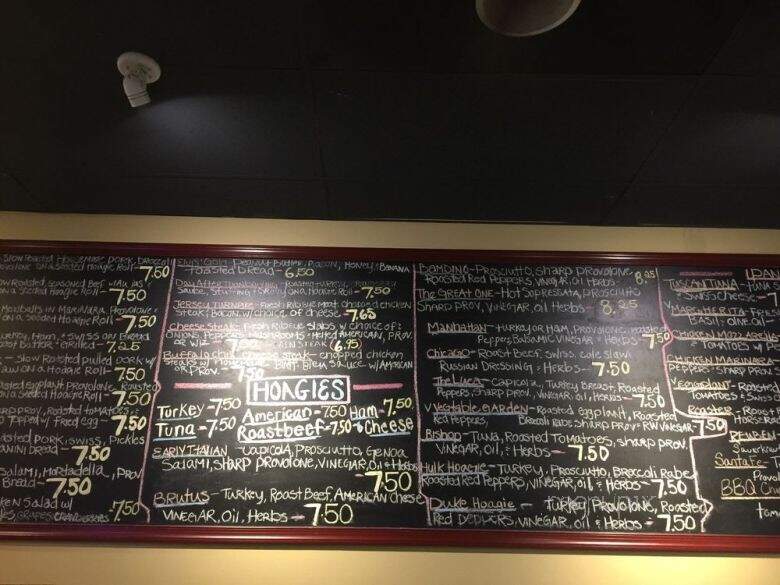 Slow Roasted Homemade Pork, Broccoli
on a Seeded Hoagie Roll - 7.50
Roasted, Seasoned Beef
on a Seeded Hoagie Roll - 7.50
Meatballs in Marinara, Provolone
Seeded Hoagie Roll - 7.50
Turkey, Ham, + Swiss on
Grilled - 7.25
- Slow Roasted pulled Pork w/
Slaw on a Hoagie Roll - 7.50
Roasted Eggplant, Provolone, Roasted
on a Seeded Hoagie Roll - 7.50
Roasted Tomatoes +
Topped w/ Fried Egg - 7.50
Roasted Pork, Swiss, Pickles
Panini Bread - 7.50
Salami, Mortadella, Prov
Bread - 7.50
Chicken Salad w/
7.50
Peanut Butter, Bacon, Honey + Banana
Toasted Bread - 6.50
Day After Thanksgiving - Roasted Turkey,
Sauce, Stuffing + Gravy on a Hoagie Roll - 7.50
Jersey Turnpike - Fresh Ribeye Meat, chopped chicken
Steak, Bacon, w/ choice of cheese - 7.65
Cheese Steak - Fresh Ribeye Slabs w/ choice of:
Onions, Peppers, Mushrooms, Hots + American, Prov.
or Wiz - 7.50 Plain Steak (6.95)
Buffalo Chic. Cheese Steak - chopped chicken
Steak w/ Hot Sauce + Bleu Cheese Sauce w/ American
or Prov. - 7.50
HOAGIES
Turkey - 7.50 American - 7.50 Ham - 7.50
Tuna - 7.50 Roastbeef - 7.50 + Cheese
Early Italian - Capicola, Prosciutto, Genoa
Salami, Sharp Provolone, Vinegar, Oil + Herbs
- 7.50
Brutus - Turkey, Roast Beef, American Cheese
Vinegar, Oil, Herbs - 7.50
Bonding - Prosciutto, Sharp Provolone 8.25
Roasted Red Peppers, Vinegar, Oil, Herbs
The Great One - Hot Sopressata, Prosciutto
Sharp Prov, Vinegar, Oil, Herbs - 8.25
Manhattan - Turkey or Ham, Provolone, Roasted
Peppers, Balsamic Vinegar + Herbs 7.50
Chicago - Roast Beef, Swiss, Cole Slaw
Russian Dressing + Herbs - 7.50
The Luca - Capicola, Turkey Breast, Roasted
Peppers, Sharp Prov, Vinegar, Oil + Herbs - 7.50
Vegetable Garden - Roasted Eggplant, Roasted
Red Peppers, Broccoli Rabe, Sharp Prov + RW Vinegar - 7.50
Bishop - Tuna, Roasted Tomatoes, Sharp Prov.
Vinegar, Oil, Herbs - 7.50
Hulk Hoagie - Turkey, Prosciutto, Broccoli Rabe
Roasted Red Peppers, Vinegar, Oil + Herbs - 7.50
Duke Hoagie - Turkey, Provolone, Roasted
Red Peppers, Vinegar, Oil + Herbs - 7.50
PAN
Tuscan Tuna - Tuna
+ Swiss Cheese - 7
Margherita - Fre
Basil, Olive Oil
Chicken
+ Tomatoes w/ B
Chicken Marinara
Peppers + Sharp Prov
Veggplant - Roasted
Tomatoes + Swiss
Roaster - Roast
+ Horser
Reuben
Sauerkr
Santa Fe -
Provol
BBQ Chic
Tom